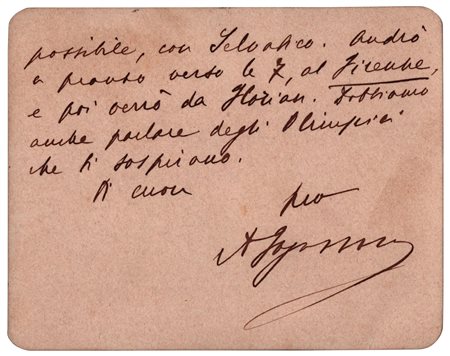 possibile, con Selvatico. Andrò
a pranzo verso le 7, al Firenze,
e poi verrò da Florian. Dobbiamo
anche parlare degli Olimpici
che ti sospirano.
Di cuore
tuo